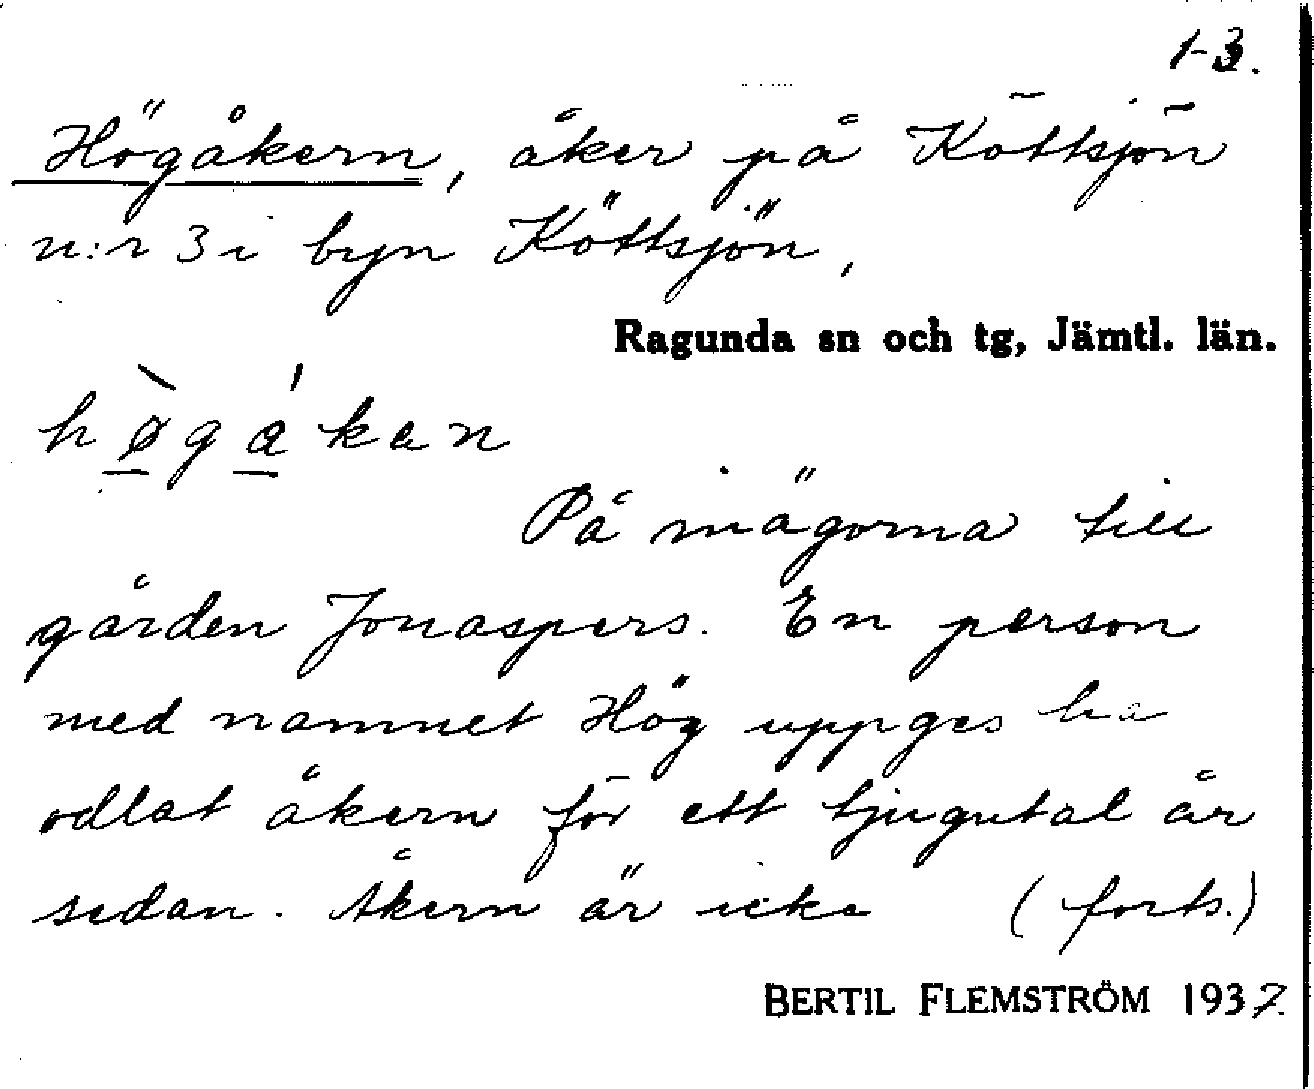 1-3.
Högåkern, åker på Köttsjön
n:r 3 i byn Köttsjön,
Ragunda sn och tg, Jämtl. län.
hø̀gákan
På mägorna till
gården Jonaspers. En person
med namnet Hög uppges ha
odlat åkern för ett tjugutal år
sedan. Åkern är icke (forts.)
BERTIL FLEMSTRÖM 1937.